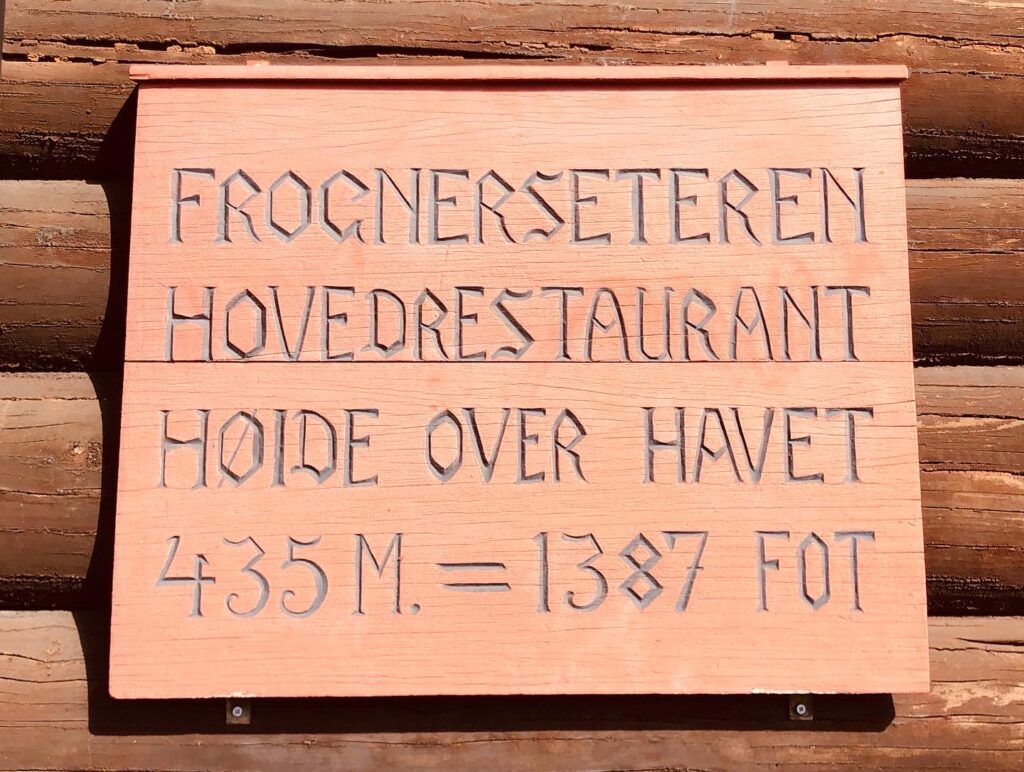 FROGNERSETEREN
HOVEDRESTAURANT
HØIDE OVER HAVET
435 M. = 1387 FOT